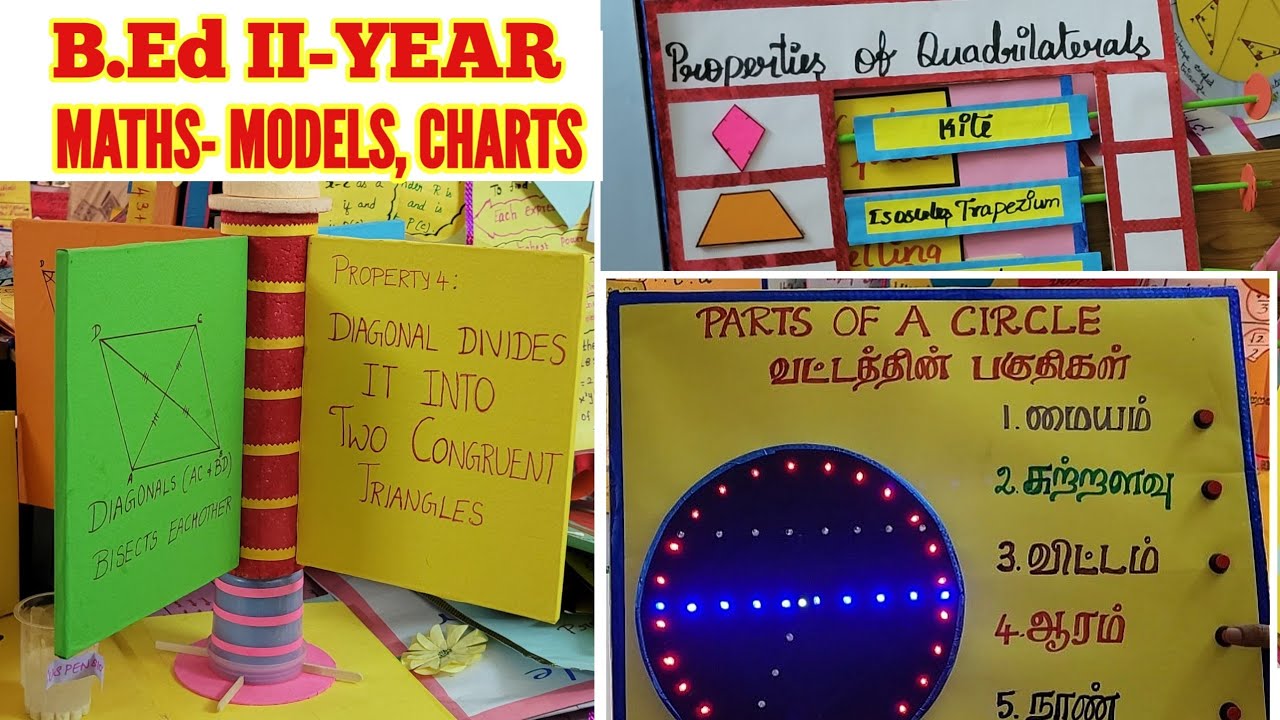 B.Ed II-YEAR
MATHS- MODELS, CHARTS
Properties of Quadrilaterals
Kite
Isosceles Trapezium
PROPERTY 4:
DIAGONAL DIVIDES
IT INTO
TWO CONGRUENT
TRIANGLES
D C
A B
DIAGONALS (AC & BD)
BISECTS EACHOTHER
PARTS OF A CIRCLE
வட்டத்தின் பகுதிகள்
1. மையம்
2. சுற்றளவு
3. விட்டம்
4. ஆரம்
5. நாண்